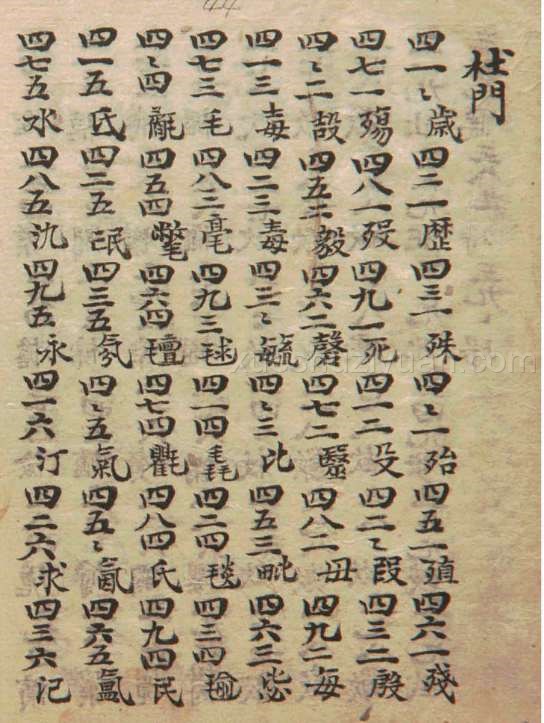 杜門
四一〻歳四二一歴四三一殊四〻一殆四五一殖四六一殘
四七一殤四八一歿四九一死四一二殳四二〻段四三二殿
四〻二殼四五二毅四六二磬四七二毉四八二毋四九二每
四一三毒四二三毒四三〻毓四〻三比四五三毗四六三毖
四七三毛四八三毫四九三毬四一四毳四二四毯四三四毹
四〻四四五四氅四六四氊四七四氍四八四氏四九四民
四一五氐四二五氓四三五氛四〻五氣四五〻氤四六五氳
四七五水四八五氿四九五永四一六汀四二六求四三六汜
44